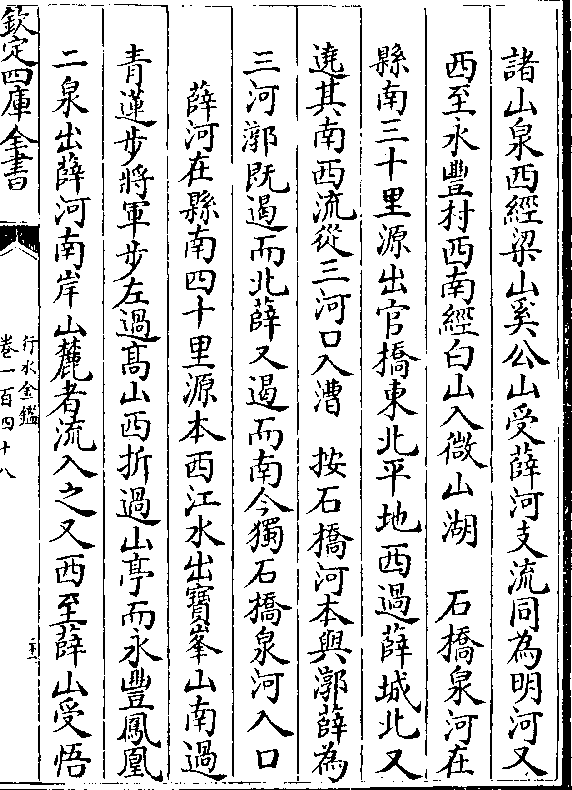 諸山泉西經梁山奚公山受薛河支流同為明河又
西至永豐村西南經白山入微山湖　石橋泉河在
縣南三十里源出官橋東北平地西過薛城北又
遶其南西流從三河口入漕　按石橋河本與漷薛為
三河漷既遏而北薛又遏而南今獨石橋泉河入口
薛河在縣南四十里源本西江水出寶峯山南過
青蓮步將軍步左過髙山西折過山亭而永豐鳳凰
二泉出薛河南岸山麓者流入之又西至薛山受悟
欽定四庫全書
行水金鑑
卷一百四十八